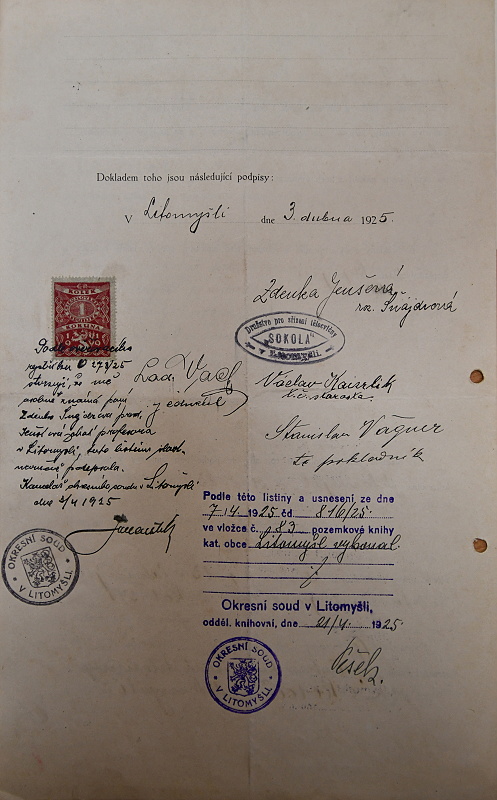 Dokladem toho jsou následující podpisy:
V Litomyšli dne 3. dubna 1925.
Zdenka Jenšová
roz. Šnajdrová
KOLEK
1
KORUNA
Družstvo pro zřízení tělocvičny
"SOKOLA"
v Litomyšli.
Lad. Vacl
jednatel
Václav Kaizrlik
t.č. starosta
Stanislav Vágner
tč pokladník
Podle
rejstříku 278/25
stvrzuji, že mě
osobně známá paní
Zdenka
profesora
v Litomyšli, tuto listinu vlast-
noručně podepsala.
Kancelář okresního soudu v Litomyšli
dne 3/4 1925
OKRESNÍ SOUD
V LITOMYŠLI
Podle této listiny a usnesení ze dne
7/4 1925 čd. 816/25
ve vložce č. 83 pozemkové knihy
kat. obce Litomyšl vykonal
Okresní soud v Litomyšli,
odděl. knihovní, dne 21/4 1925
OKRESNÍ SOUD
V LITOMYŠLI